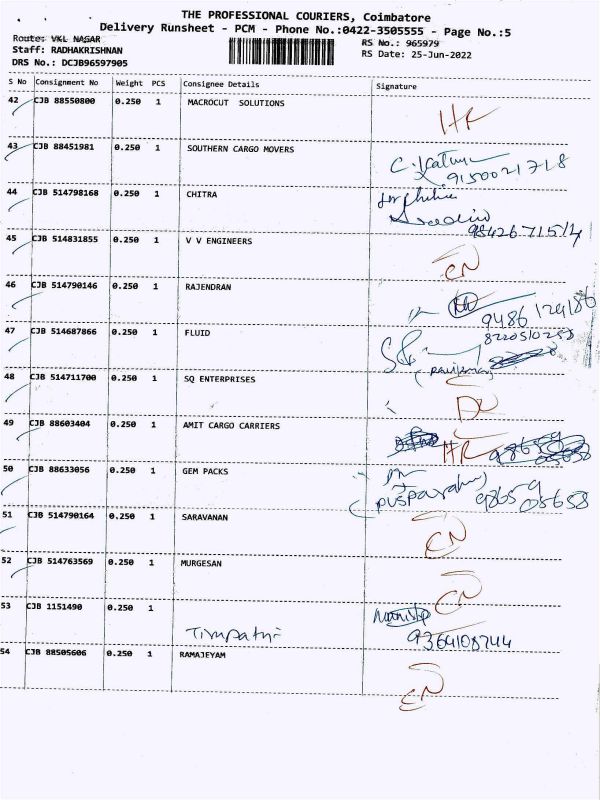 THE PROFESSIONAL COURIERS, Coimbatore
Delivery Runsheet - PCM - Phone No.:0422-3505555 - Page No.:5
Route: VKL NAGAR
RS No.: 965979
Staff: RADHAKRISHNAN
RS Date: 25-Jun-2022
DRS No.: DCJB96597905
S No Consignment No Weight PCS Consignee Details Signature
42 CJB 88550800 0.250 1 MACROCUT SOLUTIONS
HR
43 CJB 88451981 0.250 1 SOUTHERN CARGO MOVERS
9150021718
44 CJB 514798168 0.250 1 CHITRA
45 CJB 514831855 0.250 1 V V ENGINEERS
CN
46 CJB 514790146 0.250 1 RAJENDRAN
9486129186
47 CJB 514687866 0.250 1 FLUID
8220510258
48 CJB 514711700 0.250 1 SQ ENTERPRISES
DL
49 CJB 88603404 0.250 1 AMIT CARGO CARRIERS
HR
50 CJB 88633056 0.250 1 GEM PACKS
98659
05658
51 CJB 514790164 0.250 1 SARAVANAN
CN
52 CJB 514763569 0.250 1 MURGESAN
CN
53 CJB 1151490 0.250 1
Tirupathi
9364108744
54 CJB 88505606 0.250 1 RAMAJEYAM
CN